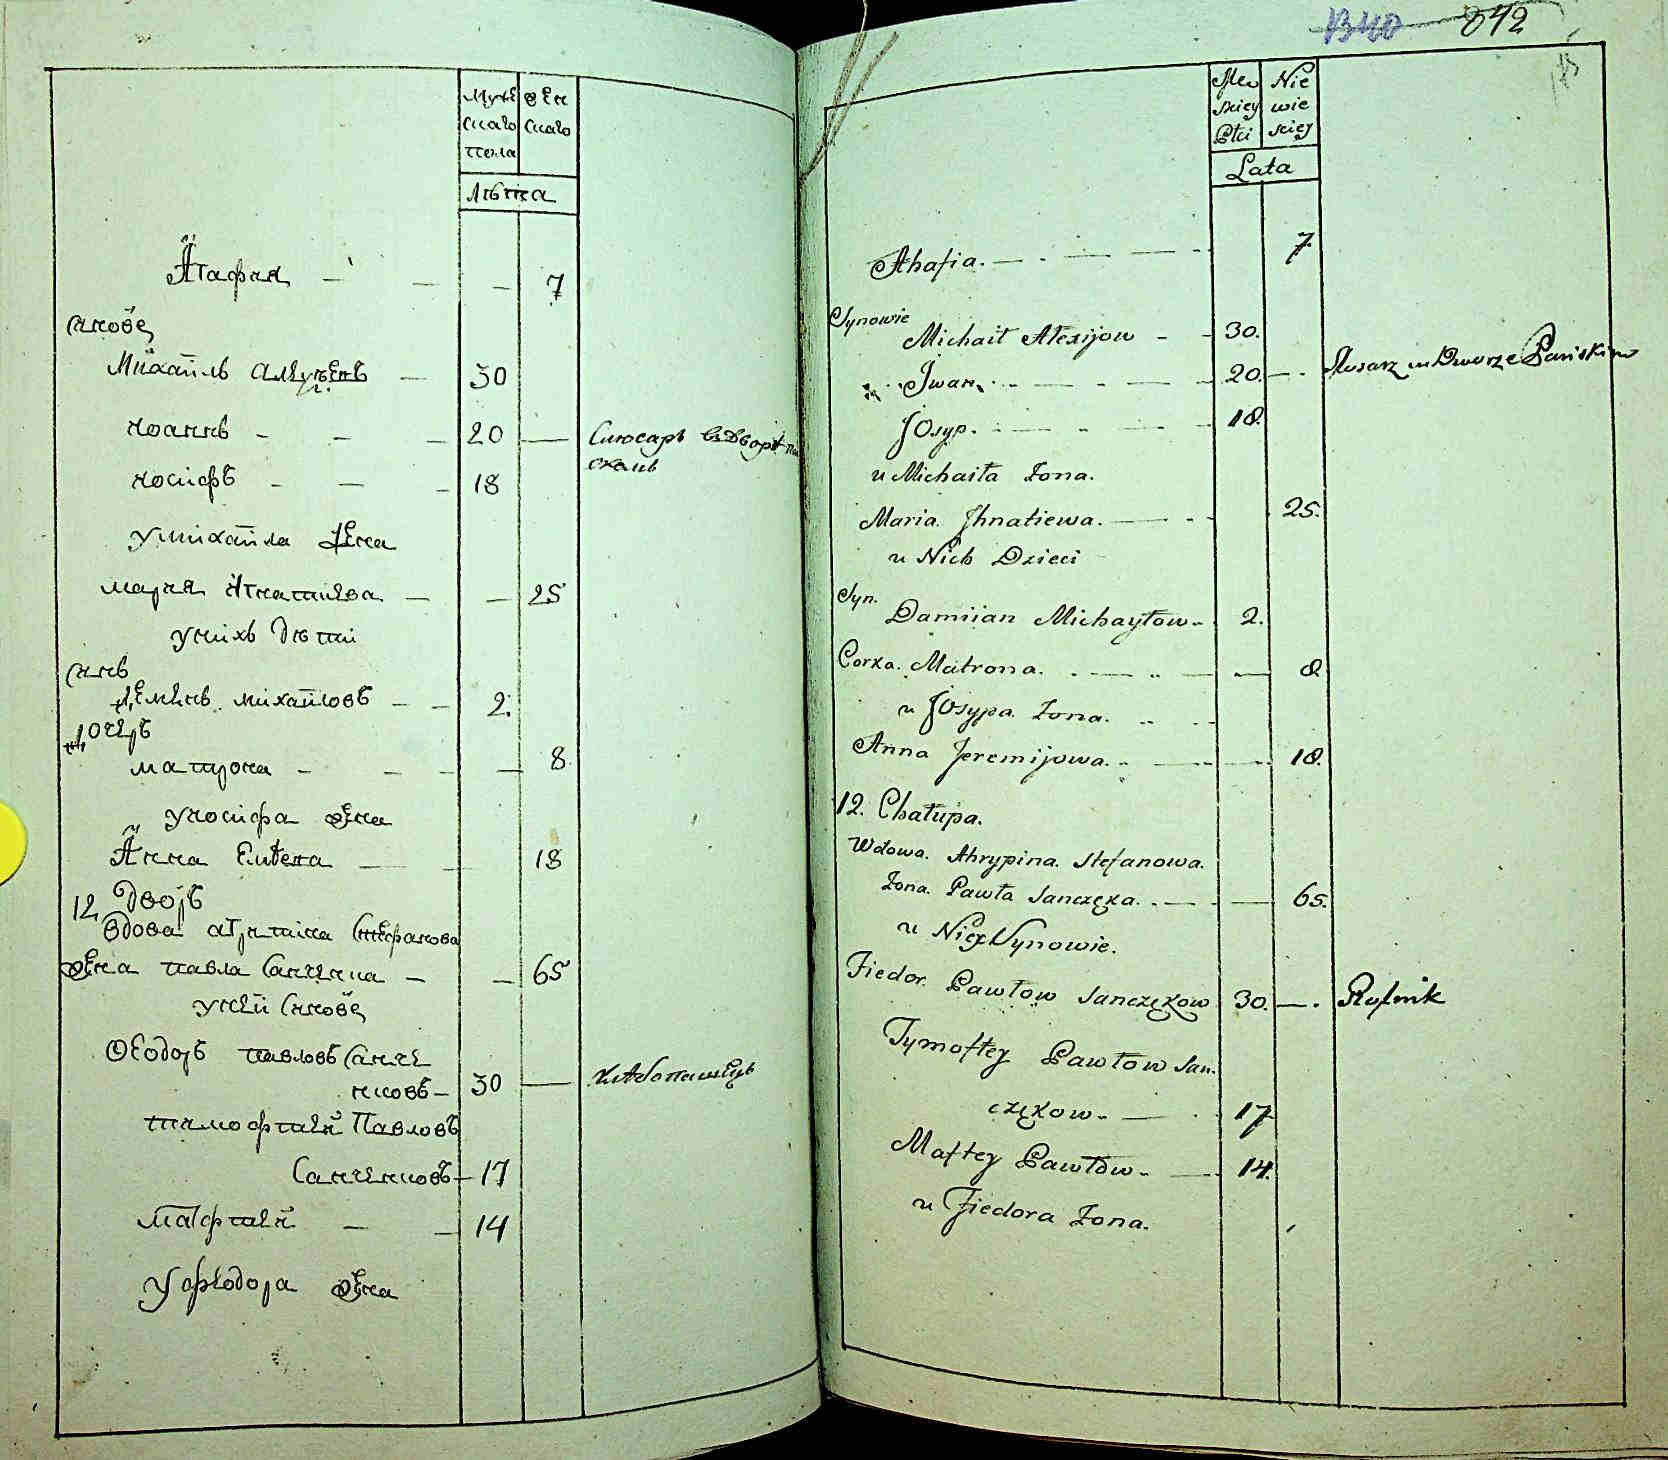 Мужескаго пола
Женскаго
Лѣта
Агафия — 7
Сынове
Михаилъ — 30
Иоаннъ — 20 — Слюсаръ въ дворѣ
Иосифъ — 18
у Михаила жена
Мария Игнатиева — 25
у нихъ дѣти
Сынъ
Демянъ Михаиловъ — 2.
Дочеръ
Матрона — 8
у Иосифа жена
Анна — 18
12 Дворъ
Вдова Агрипина Стефанова
жена Павла Санчука — 65
у ней Сынове
Ѳеодоръ Павловъ Санче
нковъ — 30 — хлѣбопашецъ
Тимофтей Павловъ
Санченковъ — 17
Мафтей — 14
у Феодора жена
1340 842
Męskiey Płci
Niewieściey
Lata
Ahafia. — 7.
Synowie
Michaił Alexijow — 30.
Jwan. — 20. — Slusarz w Dworze Pańskim
Josyp. — 18.
u Michaiła Zona.
Maria Jhnatiewa. — 25.
u Nich Dzieci
Syn.
Damiian Michayłow — 2.
Corka. Matrona. — 8
u Josypa Zona.
Anna Jeremijowa. — 18.
12. Chałupa.
Wdowa. Ahrypina. Stefanowa.
Zona. Pawła Sanczęka. — 65.
u Niey Synowie.
Fiedor. Pawłow Sanczękow 30. — Rolnik
Tymoftey Pawłow San.
czękow — 17
Maftey Pawłow — 14.
u Fiedora Zona.